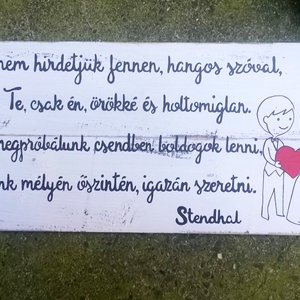 nem hirdetjük fennen, hangos szóval,
Te, csak én, örökké és holtomiglan.
megpróbálunk csendben boldogok lenni,
nk mélyén őszintén, igazán szeretni.
Stendhal